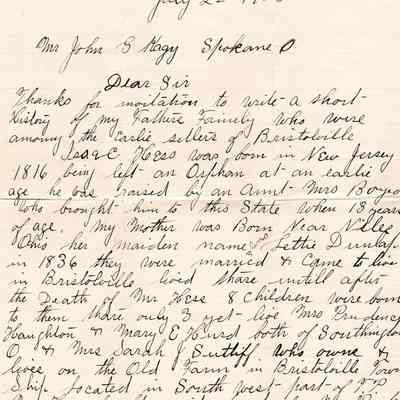 July 2
Mr John G Kagy Spokane O
Dear Sir
Thanks for invitation to write a short
History of my Fathers Family who were
among the earlie settlers of Bristolville
Isaac Hess was born in New Jersey
1816 being left an Orphan at an earlie
age he was raised by an Aunt Mrs Boyce
who brought him to this State when 13 years
of age. My Mother was Born Near Niles
Ohio her maiden name Lettie Dunlap
in 1836 they were married & Came to live
in Bristolville lived thare untill after
the Death of Mr Hess 8 Children were born
to them thare only 3 yet live Mrs Prudence
Haughton & Mary E Hurd both of Southington
O. & Mrs Sarah J Sutliff who owne &
lives on the Old Farm in Bristolville Town
Ship. Located in South west part of